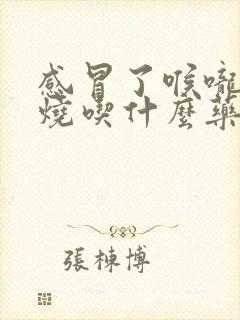 感冒了喉嚨
燒喫什麼藥
張棟博